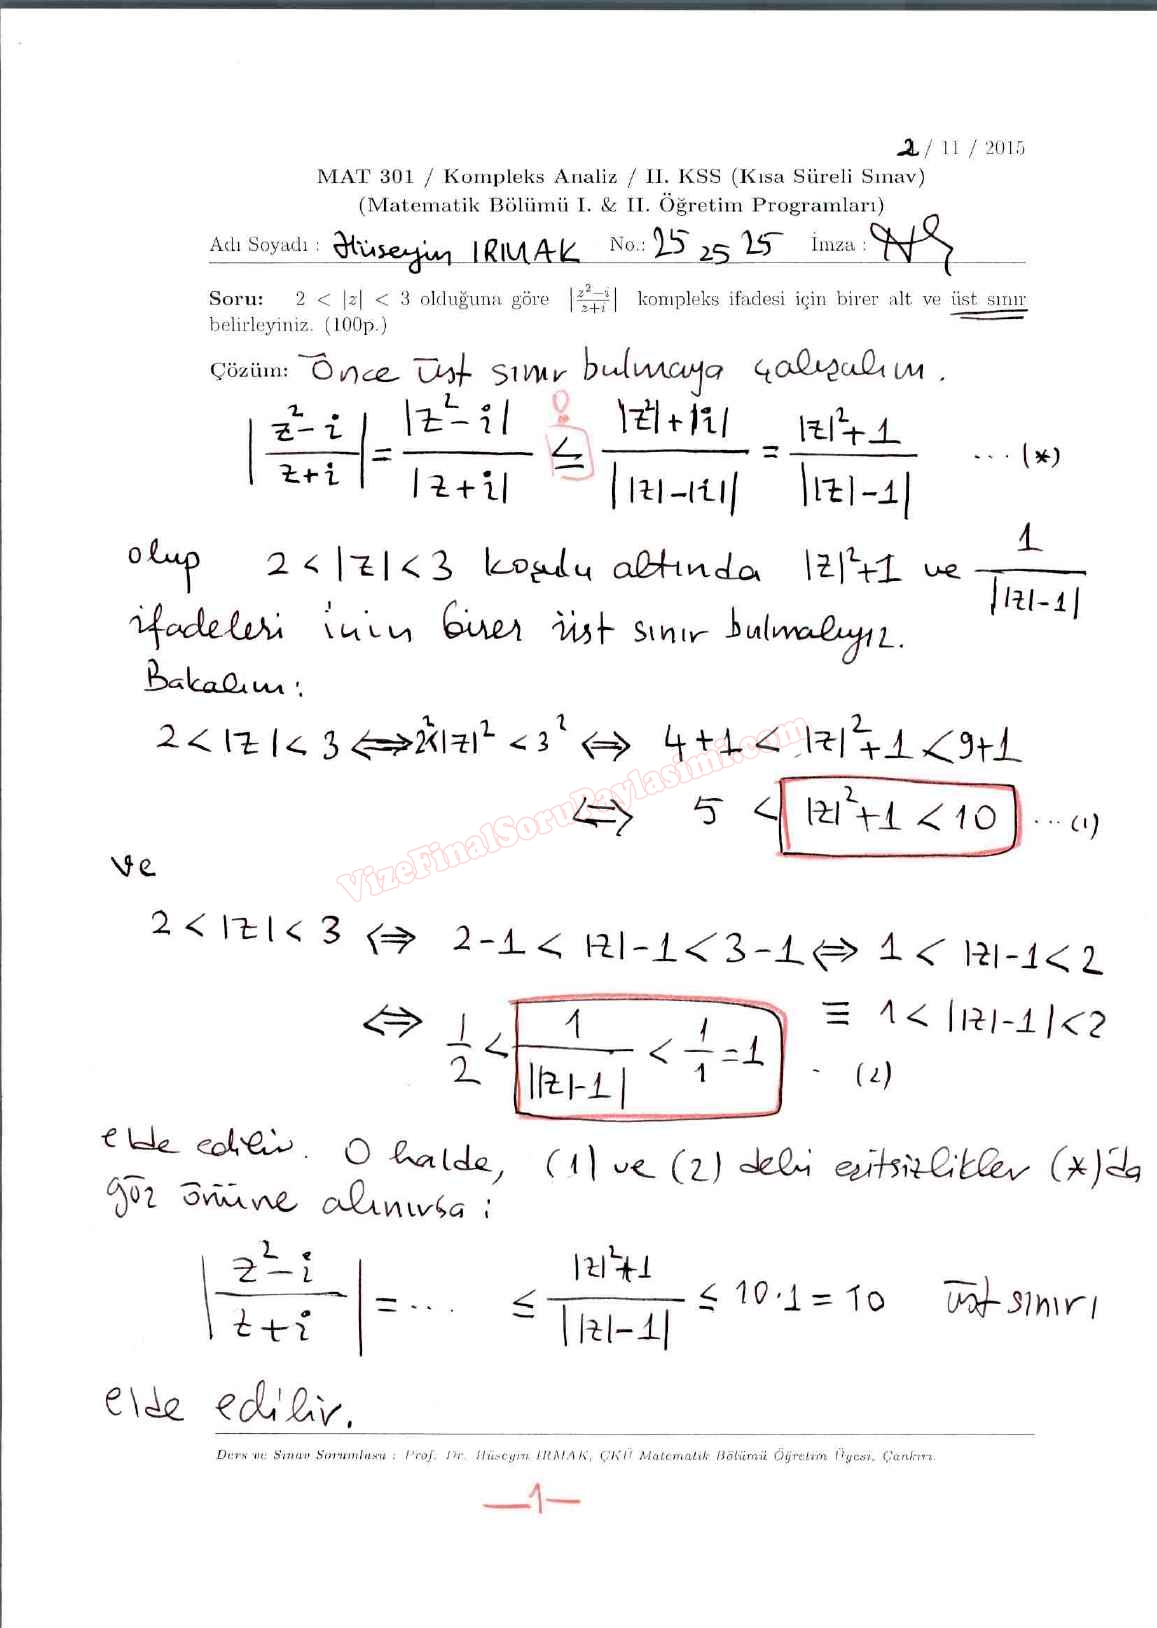 2 / 11 / 2015
MAT 301 / Kompleks Analiz / II. KSS (Kısa Süreli Sınav)
(Matematik Bölümü I. & II. Öğretim Programları)
Adı Soyadı : Hüseyin IRMAK No.: 25 25 25 İmza :
Soru: 2 < |z| < 3 olduğuna göre |z²−i / z+i| kompleks ifadesi için birer alt ve üst sınır
belirleyiniz. (100p.)
Çözüm: Önce üst sınır bulmaya çalışalım.
|z²−i / z+i| = |z²−i| / |z+i| ≤ |z²|+|i| / ||z|−|i|| = |z|²+1 / ||z|−1| ... (*)
olup 2 < |z| < 3 koşulu altında |z|²+1 ve 1 / ||z|−1|
ifadeleri için birer üst sınır bulmalıyız.
Bakalım:
2 < |z| < 3 ⇔ 2² < |z|² < 3² ⇔ 4+1 < |z|²+1 < 9+1
⇔ 5 < |z|²+1 < 10 ... (1)
VizeFinalSoruPaylasimi.com
ve
2 < |z| < 3 ⇔ 2−1 < |z|−1 < 3−1 ⇔ 1 < |z|−1 < 2
≡ 1 < ||z|−1| < 2
⇔ 1/2 < 1 / ||z|−1| < 1/1 = 1 . (2)
elde edilir. O halde, (1) ve (2) deki eşitsizlikler (*)'da
göz önüne alınırsa :
|z²−i / z+i| = ... ≤ |z|²+1 / ||z|−1| ≤ 10·1 = 10 üst sınırı
elde edilir.
Ders ve Sınav Sorumlusu : Prof. Dr. Hüseyin IRMAK, ÇKÜ Matematik Bölümü Öğretim Üyesi, Çankırı.
—1—